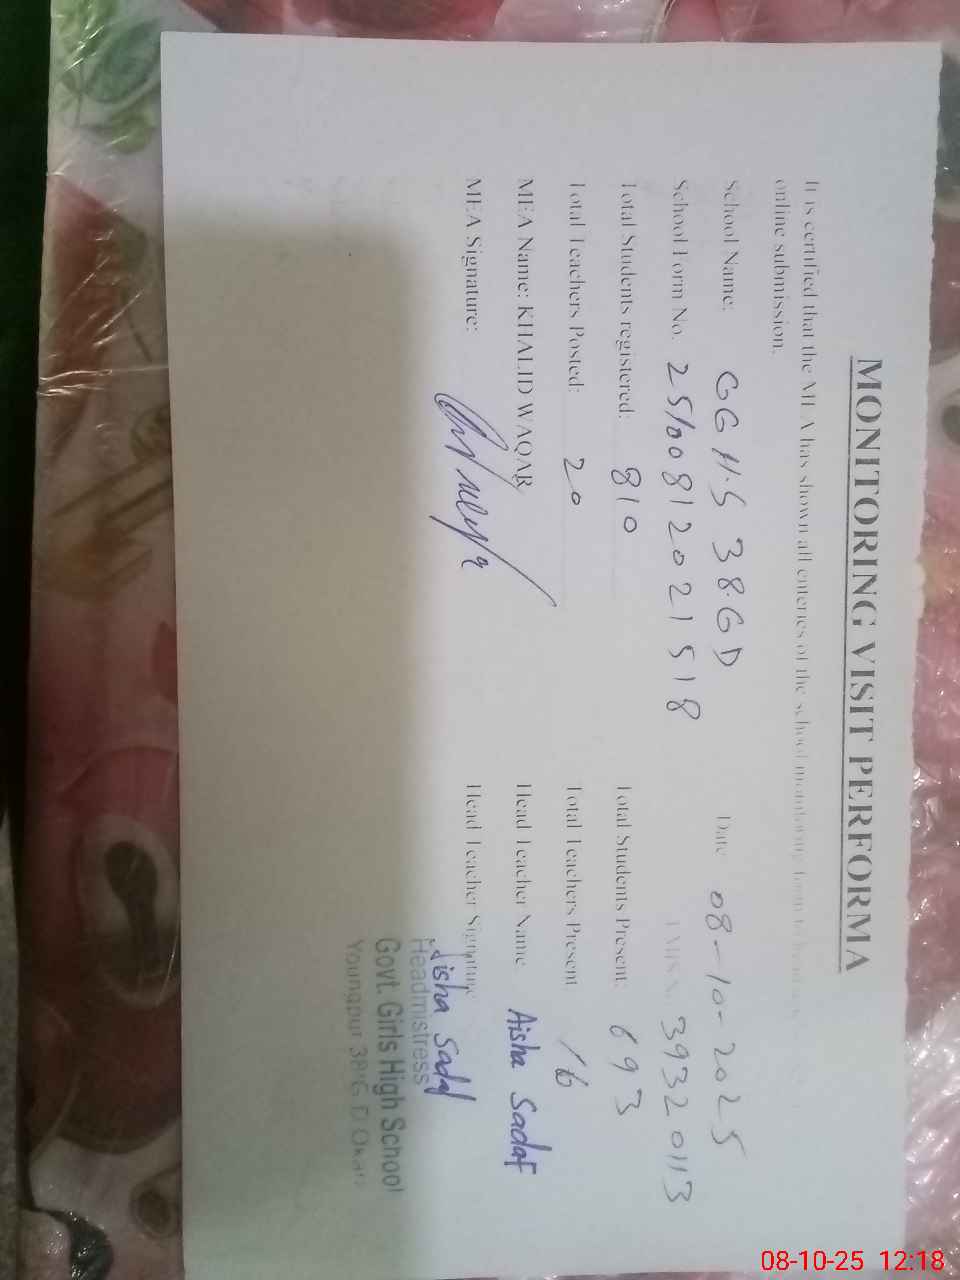 MONITORING VISIT PERFORMA
It is certified that the MEA has shown all enteries of the school monitoring form to head
online submission.
School Name: GGH.S 38.GD Date 08-10-2025
School Form No. 25100812021518 39320113
Total Students registered: 810 Total Students Present: 693
Total Teachers Posted: 20 Total Teachers Present 16
MEA Name: KHALID WAQAR Head Teacher Name Aisha Sadaf
MEA Signature: Head Teacher Signature Aisha Sadaf
Headmistress
Govt. Girls High School
Youngpur 38/G.D Okara
08-10-25 12:18